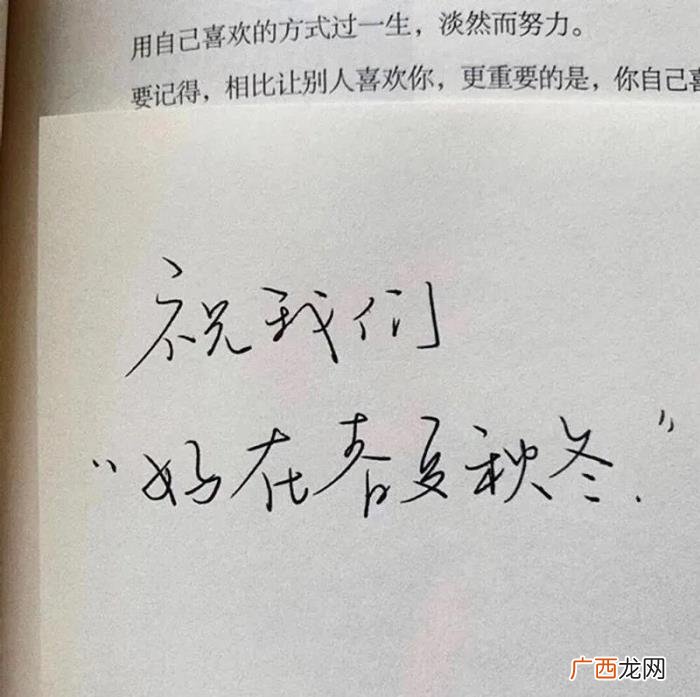 用自己喜欢的方式过一生，淡然而努力。
要记得，相比让别人喜欢你，更重要的是，你自己喜
祝我们
“好在春夏秋冬.”
广西龙网